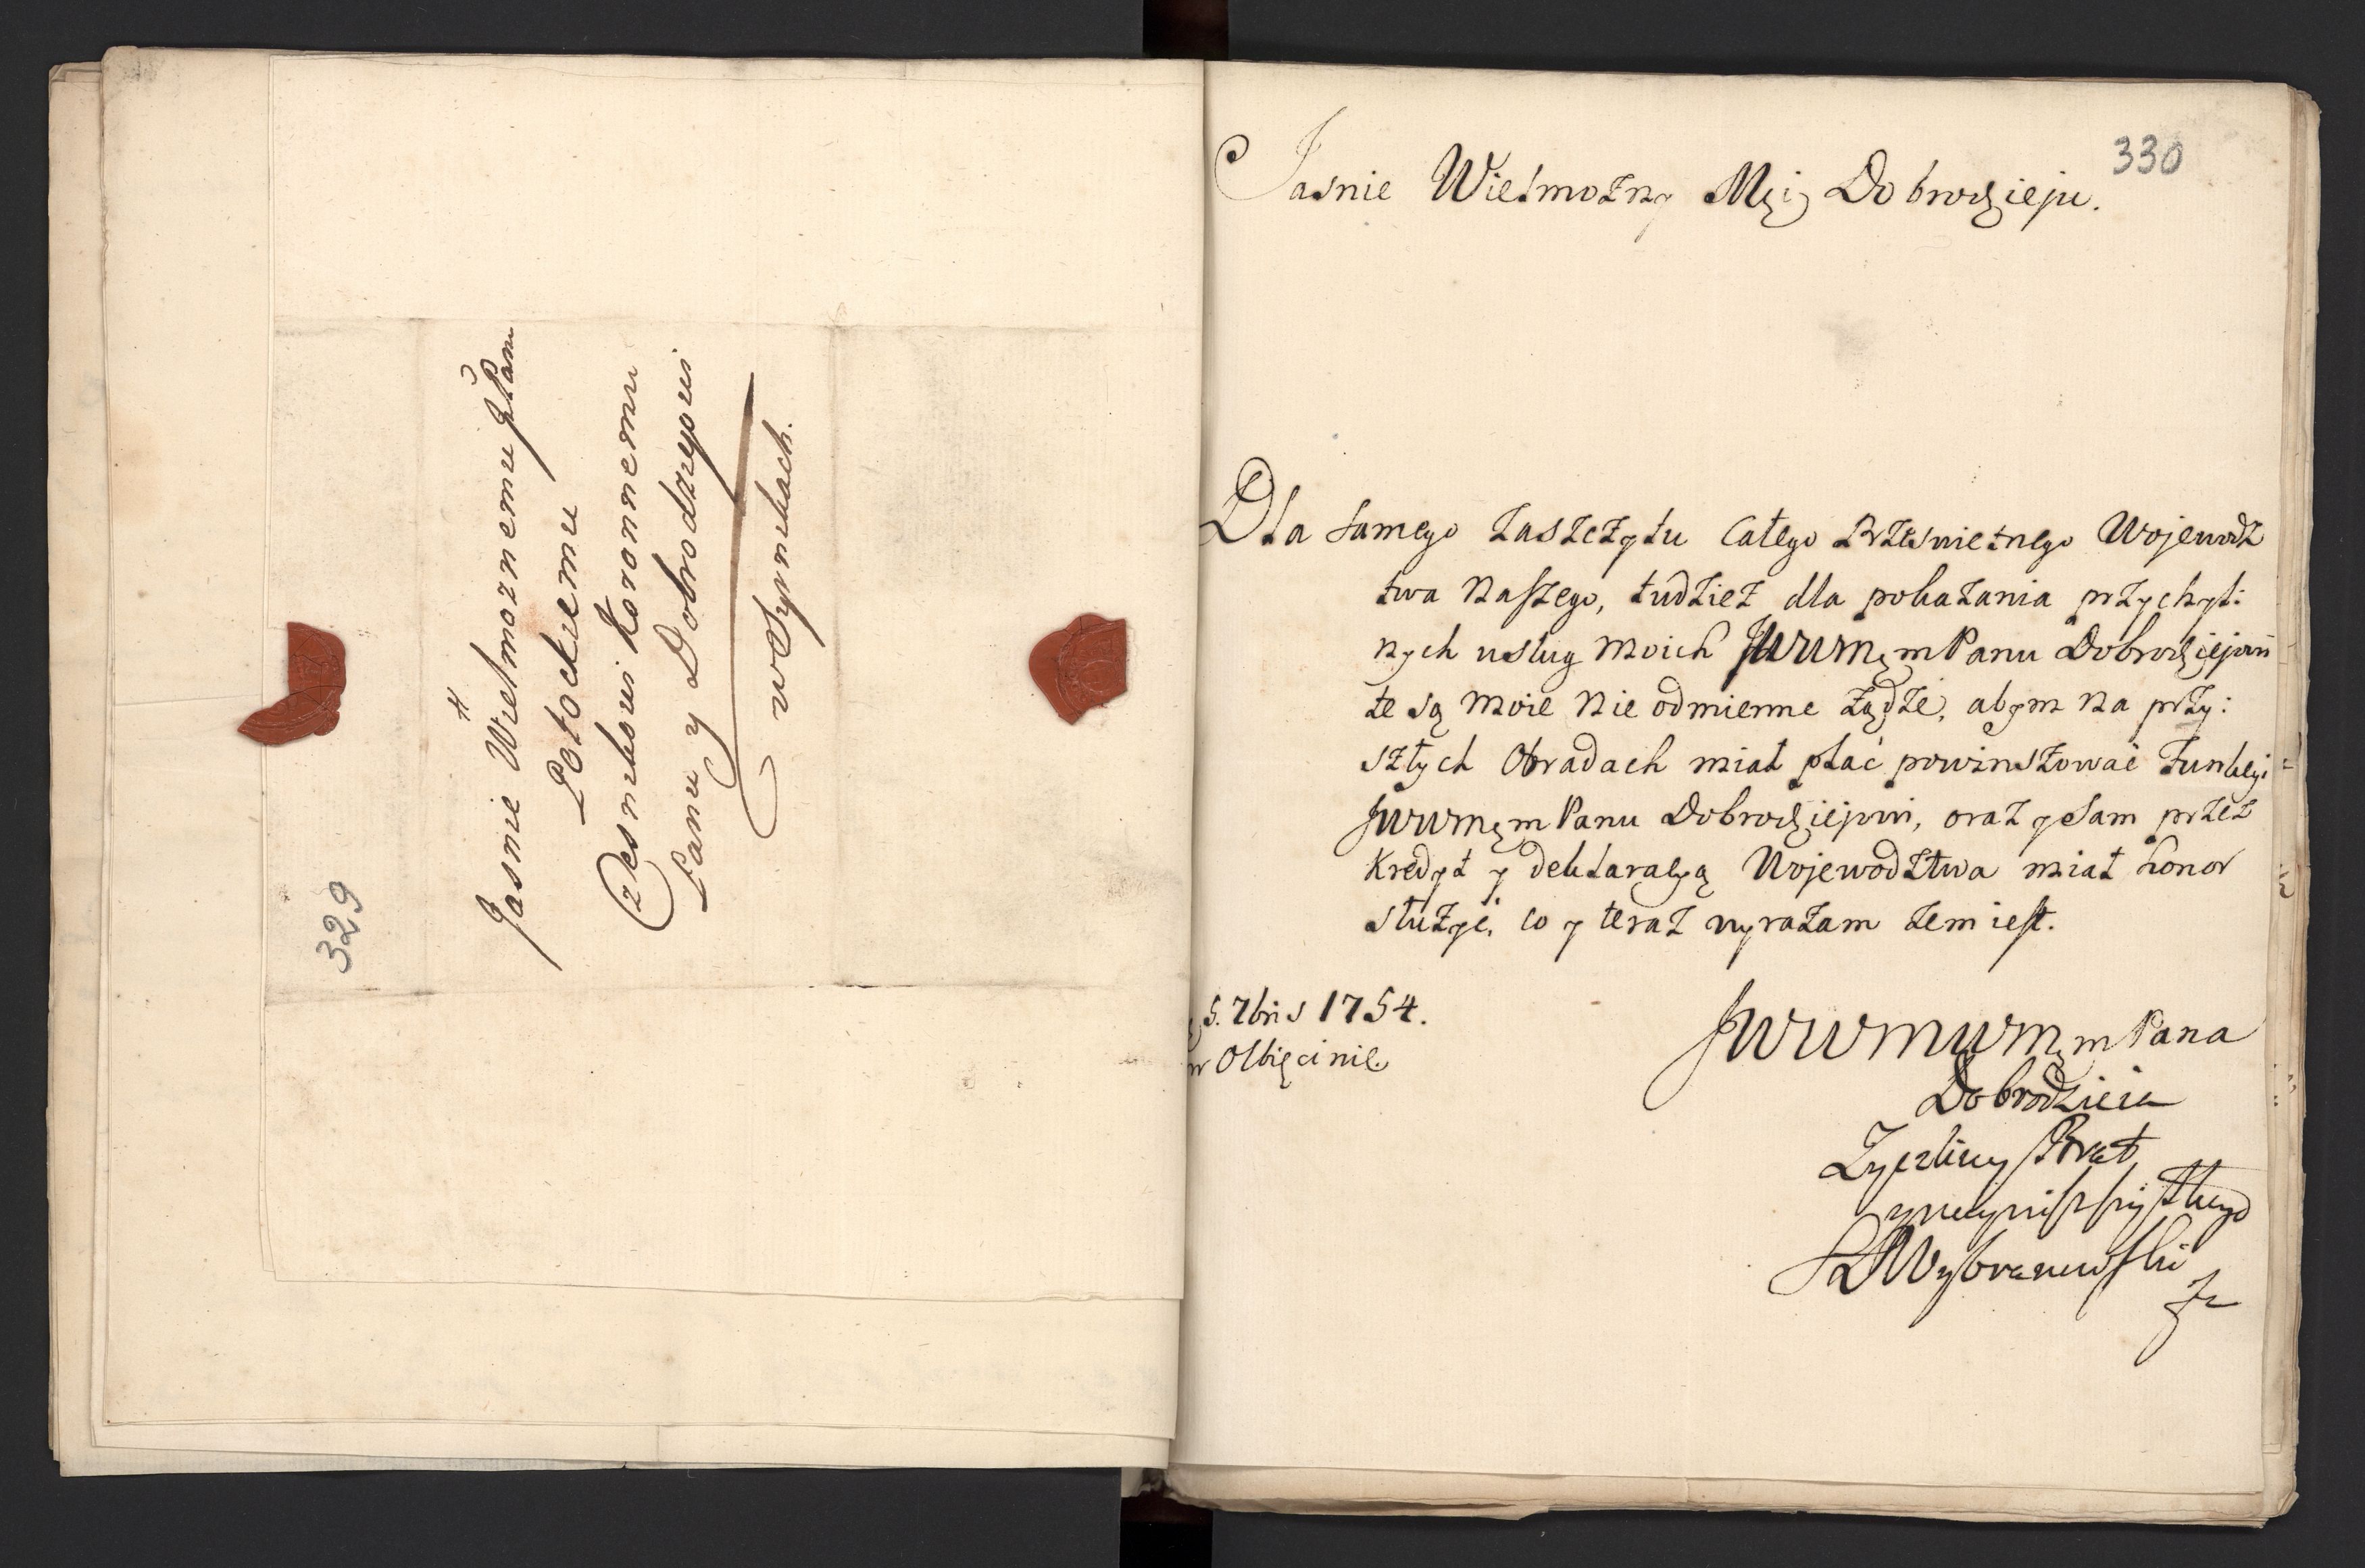 329
Jasnie Wielmoznemu JPanu
Potockiemu
Czesnikowi Koronnemu
Panu y Dobrodzieyowi
w Synikach.
330
Jasnie Wielmozny Mći Dobrodzieju.
Dla samego zaszczytu całego Prześwietnego Wojewodz
twa Naszego, tudziez dla pokazania przychyl:
nych usług Moich JWWMęmPanu Dobrodziejowi
te są Moie Nie odmienne żądze, abym Na przy:
szłych Obradach miał plac powinszować Funkcyi
JWWMęmPanu Dobrodziejowi, oraz y Sam przez
Kredyt y deklaracyą Wojewodztwa miał honor
służyć, co y teraz wyrażam żem iest.
5. 7bris 1754.
w Olbięcinie.
JWWMWMęmPana
Dobrodzieia
Zyczliwy Brat
y Sługa
Wybranowski